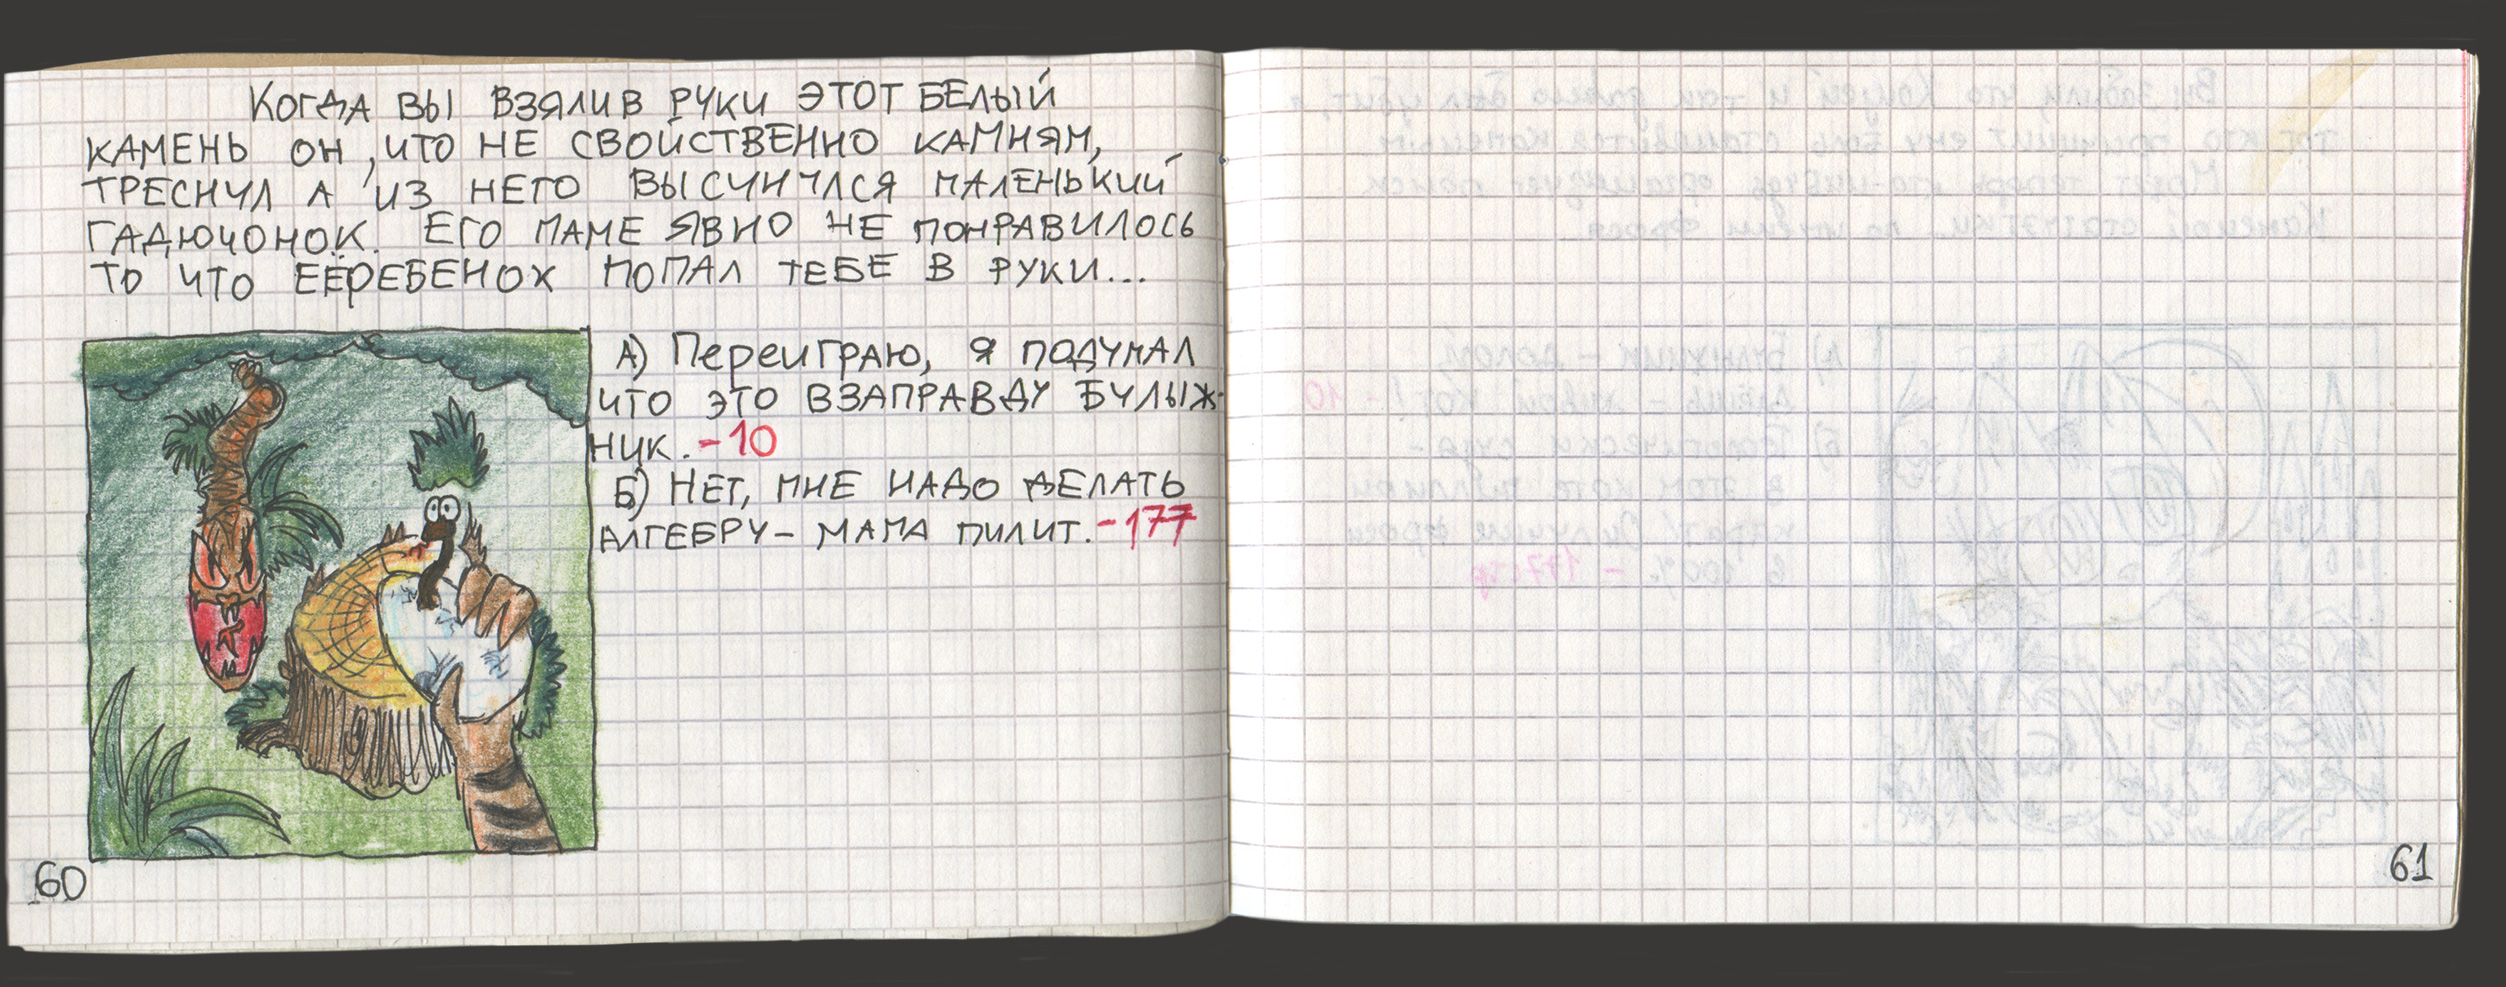 Когда вы взяли в руки этот белый
камень он, что не свойственно камням,
треснул а из него высунулся маленький
гадючонок. Его маме явно не понравилось
то что её ребенок попал тебе в руки...
А) Переиграю, я подумал
что это взаправду булыж-
ник. -10
Б) Нет, мне надо делать
алгебру - мама пилит. -177
60
61